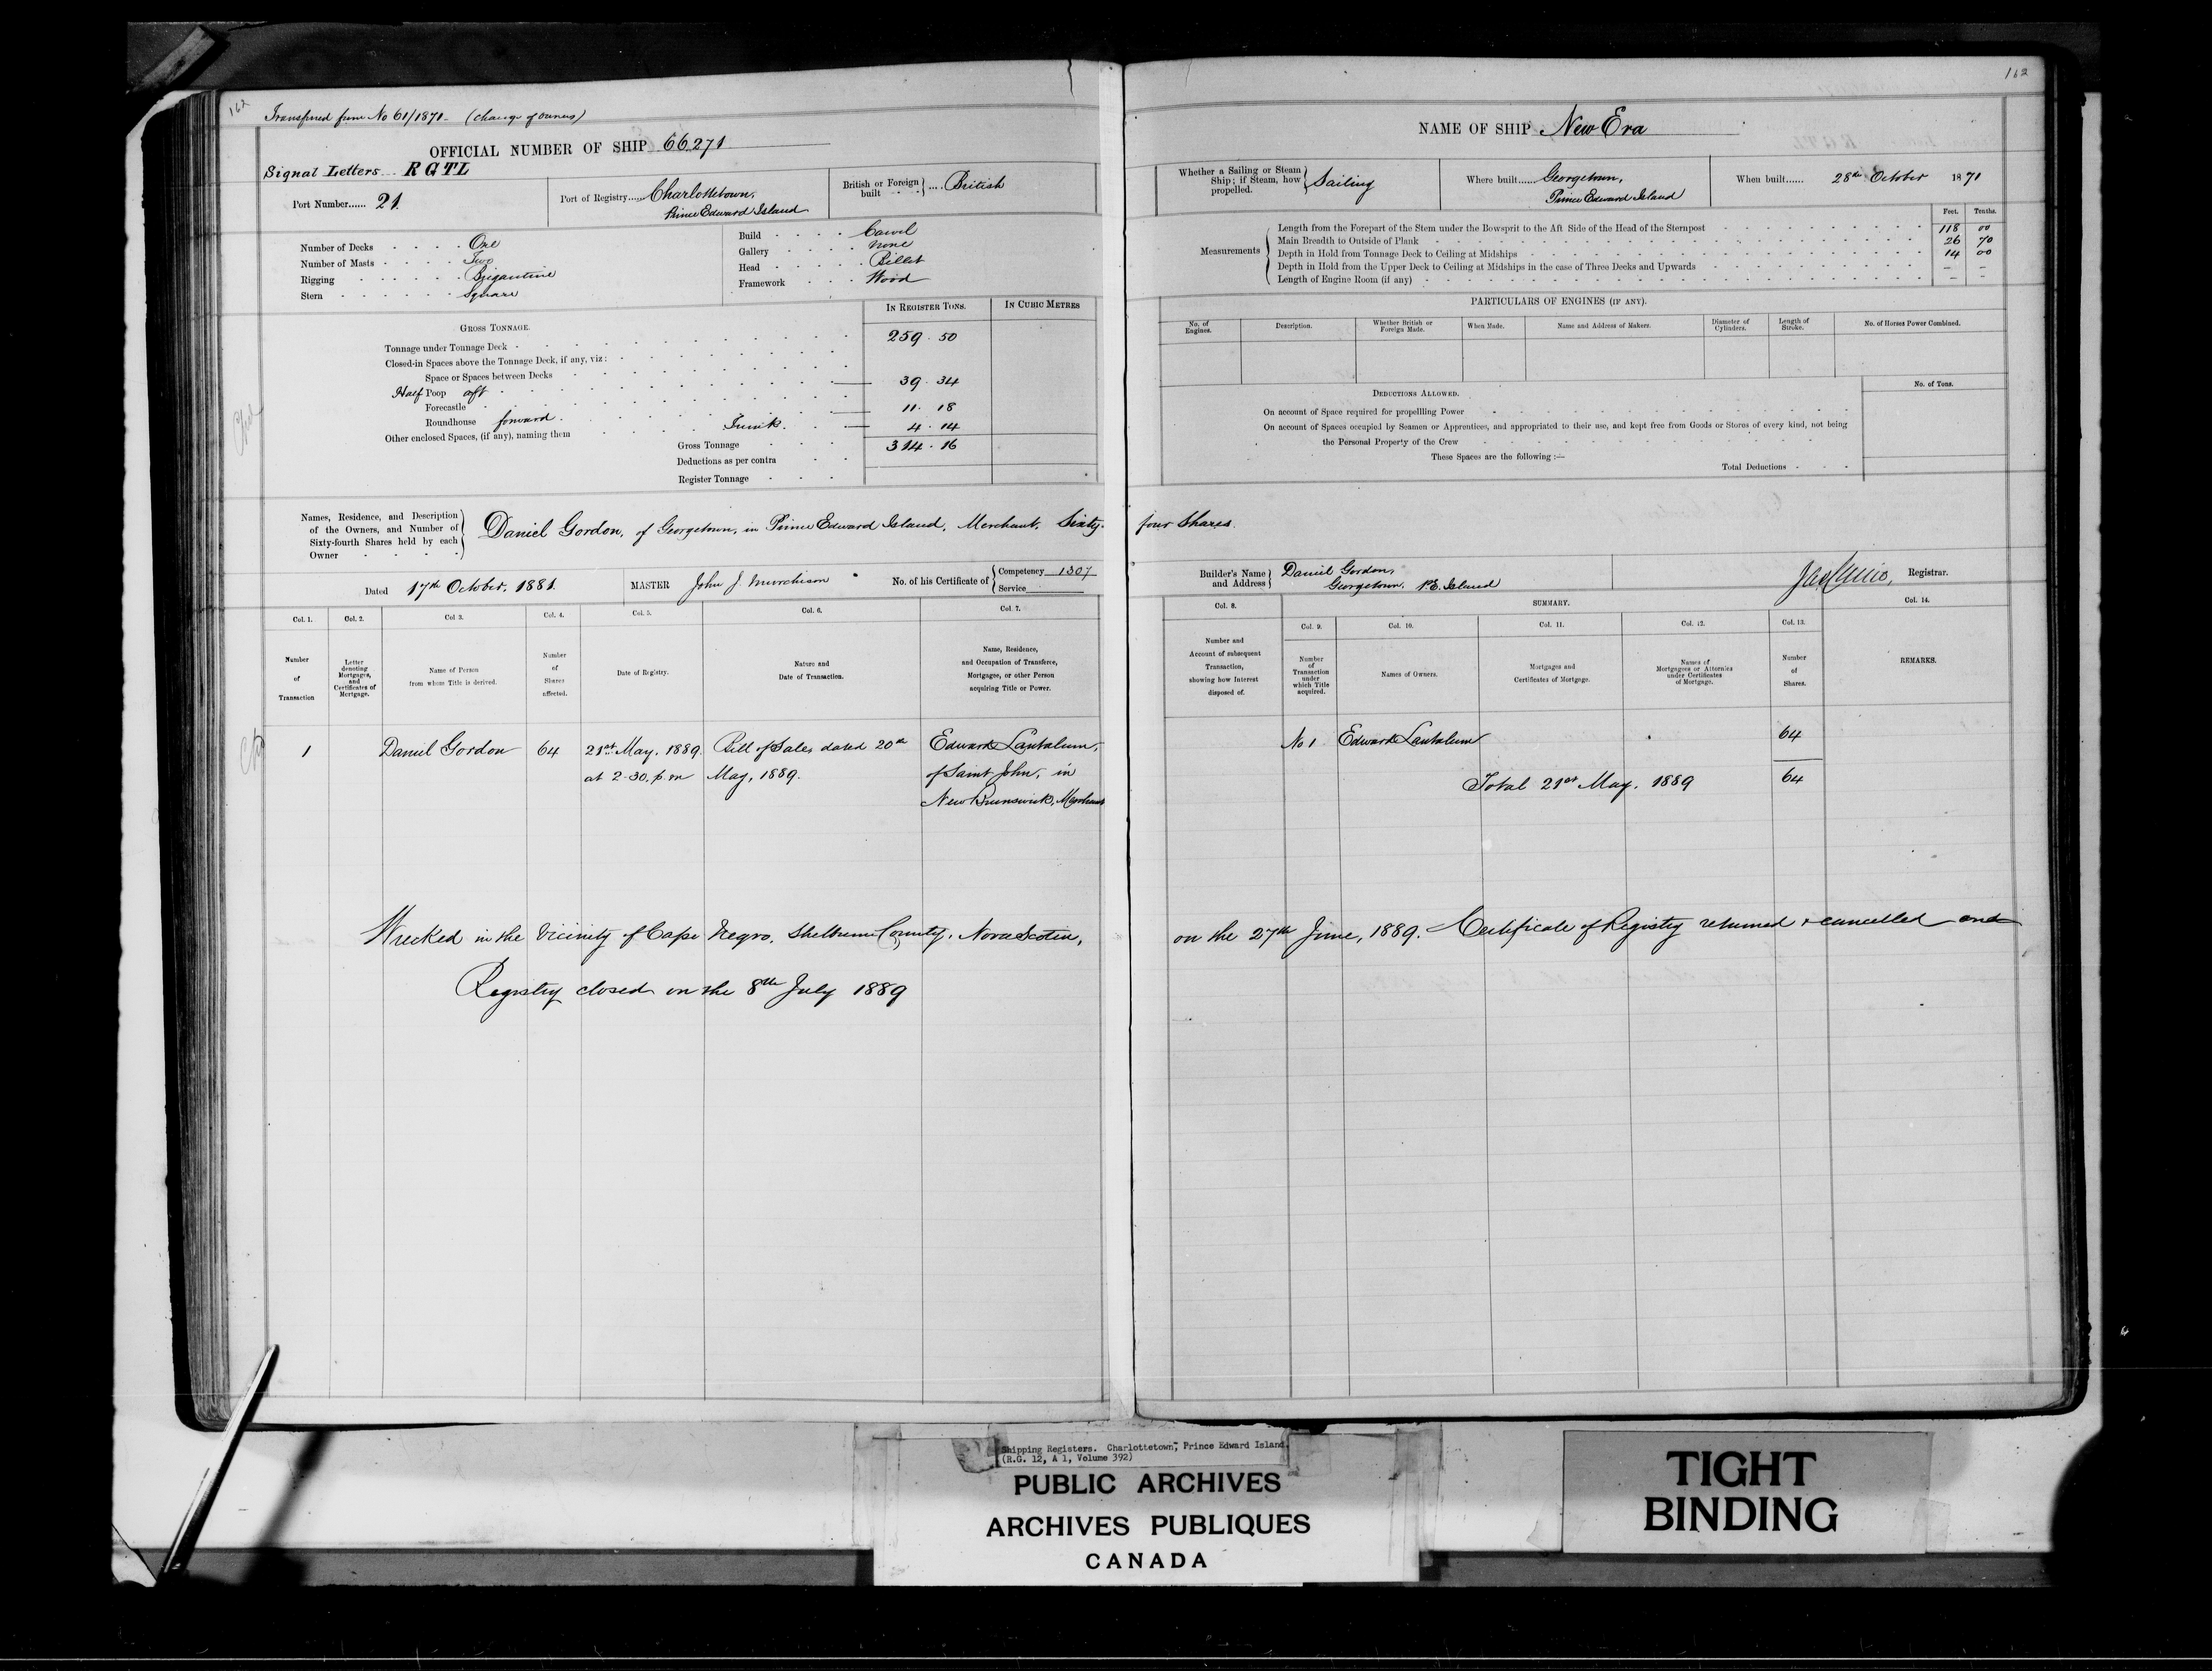 162
Transferred from No 61/1871. (Change of owners)
OFFICIAL NUMBER OF SHIP 66.271
Signal Letters RGTL
Port Number...... 21.
Port of Registry...... Charlottetown,
Prince Edward Island
British or Foreign built .... British
Number of Decks One
Number of Masts Two
Rigging Brigantine
Stern Square
Build Carvel
Gallery none
Head Billet
Framework Wood
IN REGISTER TONS. IN CUBIC METRES
GROSS TONNAGE.
Tonnage under Tonnage Deck 259.50
Closed-in Spaces above the Tonnage Deck, if any, viz:
Space or Spaces between Decks
Half Poop aft 39.34
Forecastle
Roundhouse forward 11.18
Other enclosed Spaces, (if any), naming them 4.14
Gross Tonnage 314.16
Deductions as per contra
Register Tonnage
Names, Residence, and Description
of the Owners, and Number of
Sixty-fourth Shares held by each
Owner
Daniel Gordon, of Georgetown, in Prince Edward Island, Merchant, Sixty-
Dated 17th October, 1881. MASTER John J. Murchison No. of his Certificate of Competency 1307
Service
Col. 1. Col. 2. Col. 3. Col. 4. Col. 5. Col. 6. Col. 7.
Number
of
Transaction
Letter
denoting
Mortgages,
and
Certificates of
Mortgage.
Name of Person
from whom Title is derived.
Number
of
Shares
affected.
Date of Registry.
Nature and
Date of Transaction.
Name, Residence,
and Occupation of Transferee,
Mortgagee, or other Person
acquiring Title or Power.
1 Daniel Gordon 64 21st May, 1889. Bill of Sale dated 20th Edward Lantalum,
at 2-30. p.m May, 1889. of Saint John, in
New Brunswick, Merchant
Wrecked in the vicinity of Cape Negro, Shelburne County, Nova Scotia,
Registry closed on the 8th July 1889
162
NAME OF SHIP New Era
Whether a Sailing or Steam
Ship; if Steam, how
propelled.
Sailing
Where built...... Georgetown,
Prince Edward Island
When built...... 28th October 1871
Feet. Tenths.
Measurements
Length from the Forepart of the Stem under the Bowsprit to the Aft Side of the Head of the Sternpost 118 00
Main Breadth to Outside of Plank 26 70
Depth in Hold from Tonnage Deck to Ceiling at Midships 14 00
Depth in Hold from the Upper Deck to Ceiling at Midships in the case of Three Decks and Upwards – –
Length of Engine Room (if any) – –
PARTICULARS OF ENGINES (IF ANY).
No. of
Engines.
Description.
Whether British or
Foreign Made.
When Made.
Name and Address of Makers.
Diameter of
Cylinders.
Length of
Stroke.
No. of Horses Power Combined.
DEDUCTIONS ALLOWED. No. of Tons.
On account of Space required for propellling Power
On account of Spaces occupied by Seamen or Apprentices, and appropriated to their use, and kept free from Goods or Stores of every kind, not being
the Personal Property of the Crew
These Spaces are the following :—
Total Deductions
four Shares.
Builder's Name
and Address
Daniel Gordon,
Georgetown. P.E. Island
Registrar.
Col. 8. SUMMARY. Col. 14.
Col. 9. Col. 10. Col. 11. Col. 12. Col. 13.
Number and
Account of subsequent
Transaction,
showing how Interest
disposed of.
Number
of
Transaction
under
which Title
acquired.
Names of Owners.
Mortgages and
Certificates of Mortgage.
Names of
Mortgagees or Attornies
under Certificates
of Mortgage.
Number
of
Shares.
REMARKS.
No 1 Edward Lantalum 64
Total 21st May, 1889 64
on the 27th June, 1889. Certificate of Registry returned & cancelled and
Shipping Registers. Charlottetown, Prince Edward Island.
(R.G. 12, A 1, Volume 392)
PUBLIC ARCHIVES
ARCHIVES PUBLIQUES
CANADA
TIGHT
BINDING